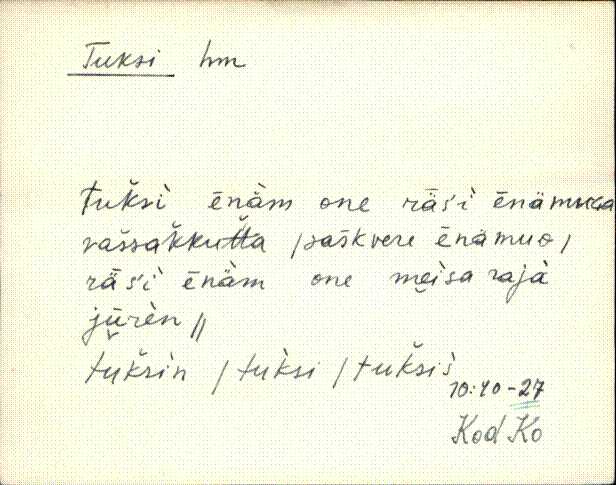 Tuksi hm
tuk̆sì ēnàm one räs'ì ēnämuga
vas̆sak̆kut̆ta /pas̆kvere ēnämuo/
räs'ì ēnàm one mei̮sa rajà
jṳ̄rèn //
tuk̆sìn / tùksi / tuk̆sis̀
10:40-27
Kod Ko